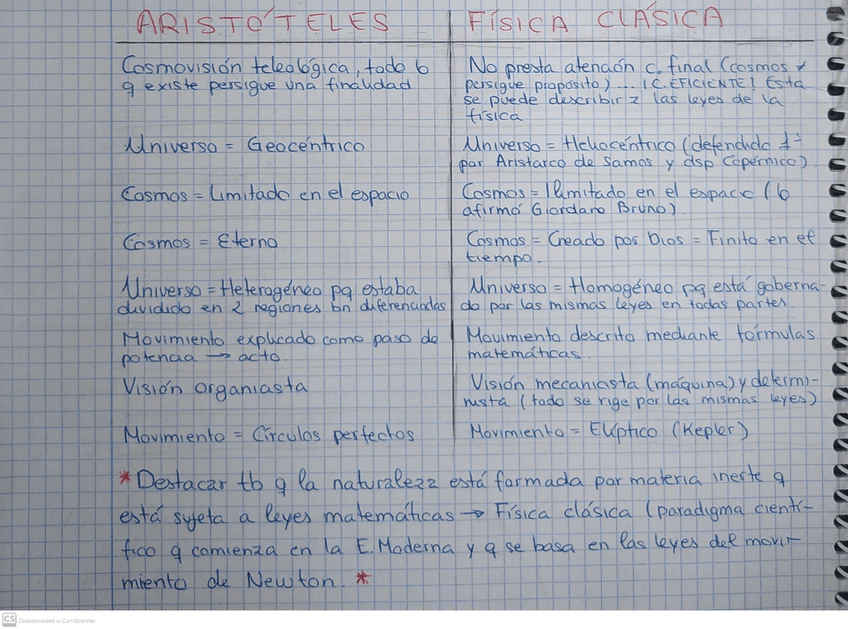 ARISTÓTELES
Cosmovisión teleológica, todo lo
q existe persigue una finalidad
Universo = Geocéntrico
Cosmos = Limitado en el espacio
Cosmos = Eterno
Universo = Heterogéneo pq estaba
dividido en 2 regiones bn diferenciadas
Movimiento explicado como paso de
potencia → acto.
Visión organicista
Movimiento = Círculos perfectos
FÍSICA CLÁSICA
No presta atención c. final (cosmos ≠
persigue propósito)... ¡C. EFICIENTE! Esta
se puede describir z las leyes de la
física
Universo = Heliocéntrico (defendido 1º
por Aristarco de Samos y dsp Copérnico).
Cosmos = Ilimitado en el espacio (lo
afirmó Giordano Bruno).
Cosmos = Creado por Dios = Finito en el
tiempo.
Universo = Homogéneo pq está goberna-
do por las mismas leyes en todas partes.
Movimiento descrito mediante fórmulas
matemáticas.
Visión mecanicista (máquina) y determi-
nista (todo se rige por las mismas leyes)
Movimiento = Elíptico (Kepler)
* Destacar tb q la naturaleza está formada por materia inerte q
está sujeta a leyes matemáticas → Física clásica (paradigma cientí-
fico q comienza en la E. Moderna y q se basa en las leyes del movi-
miento de Newton. *
CS